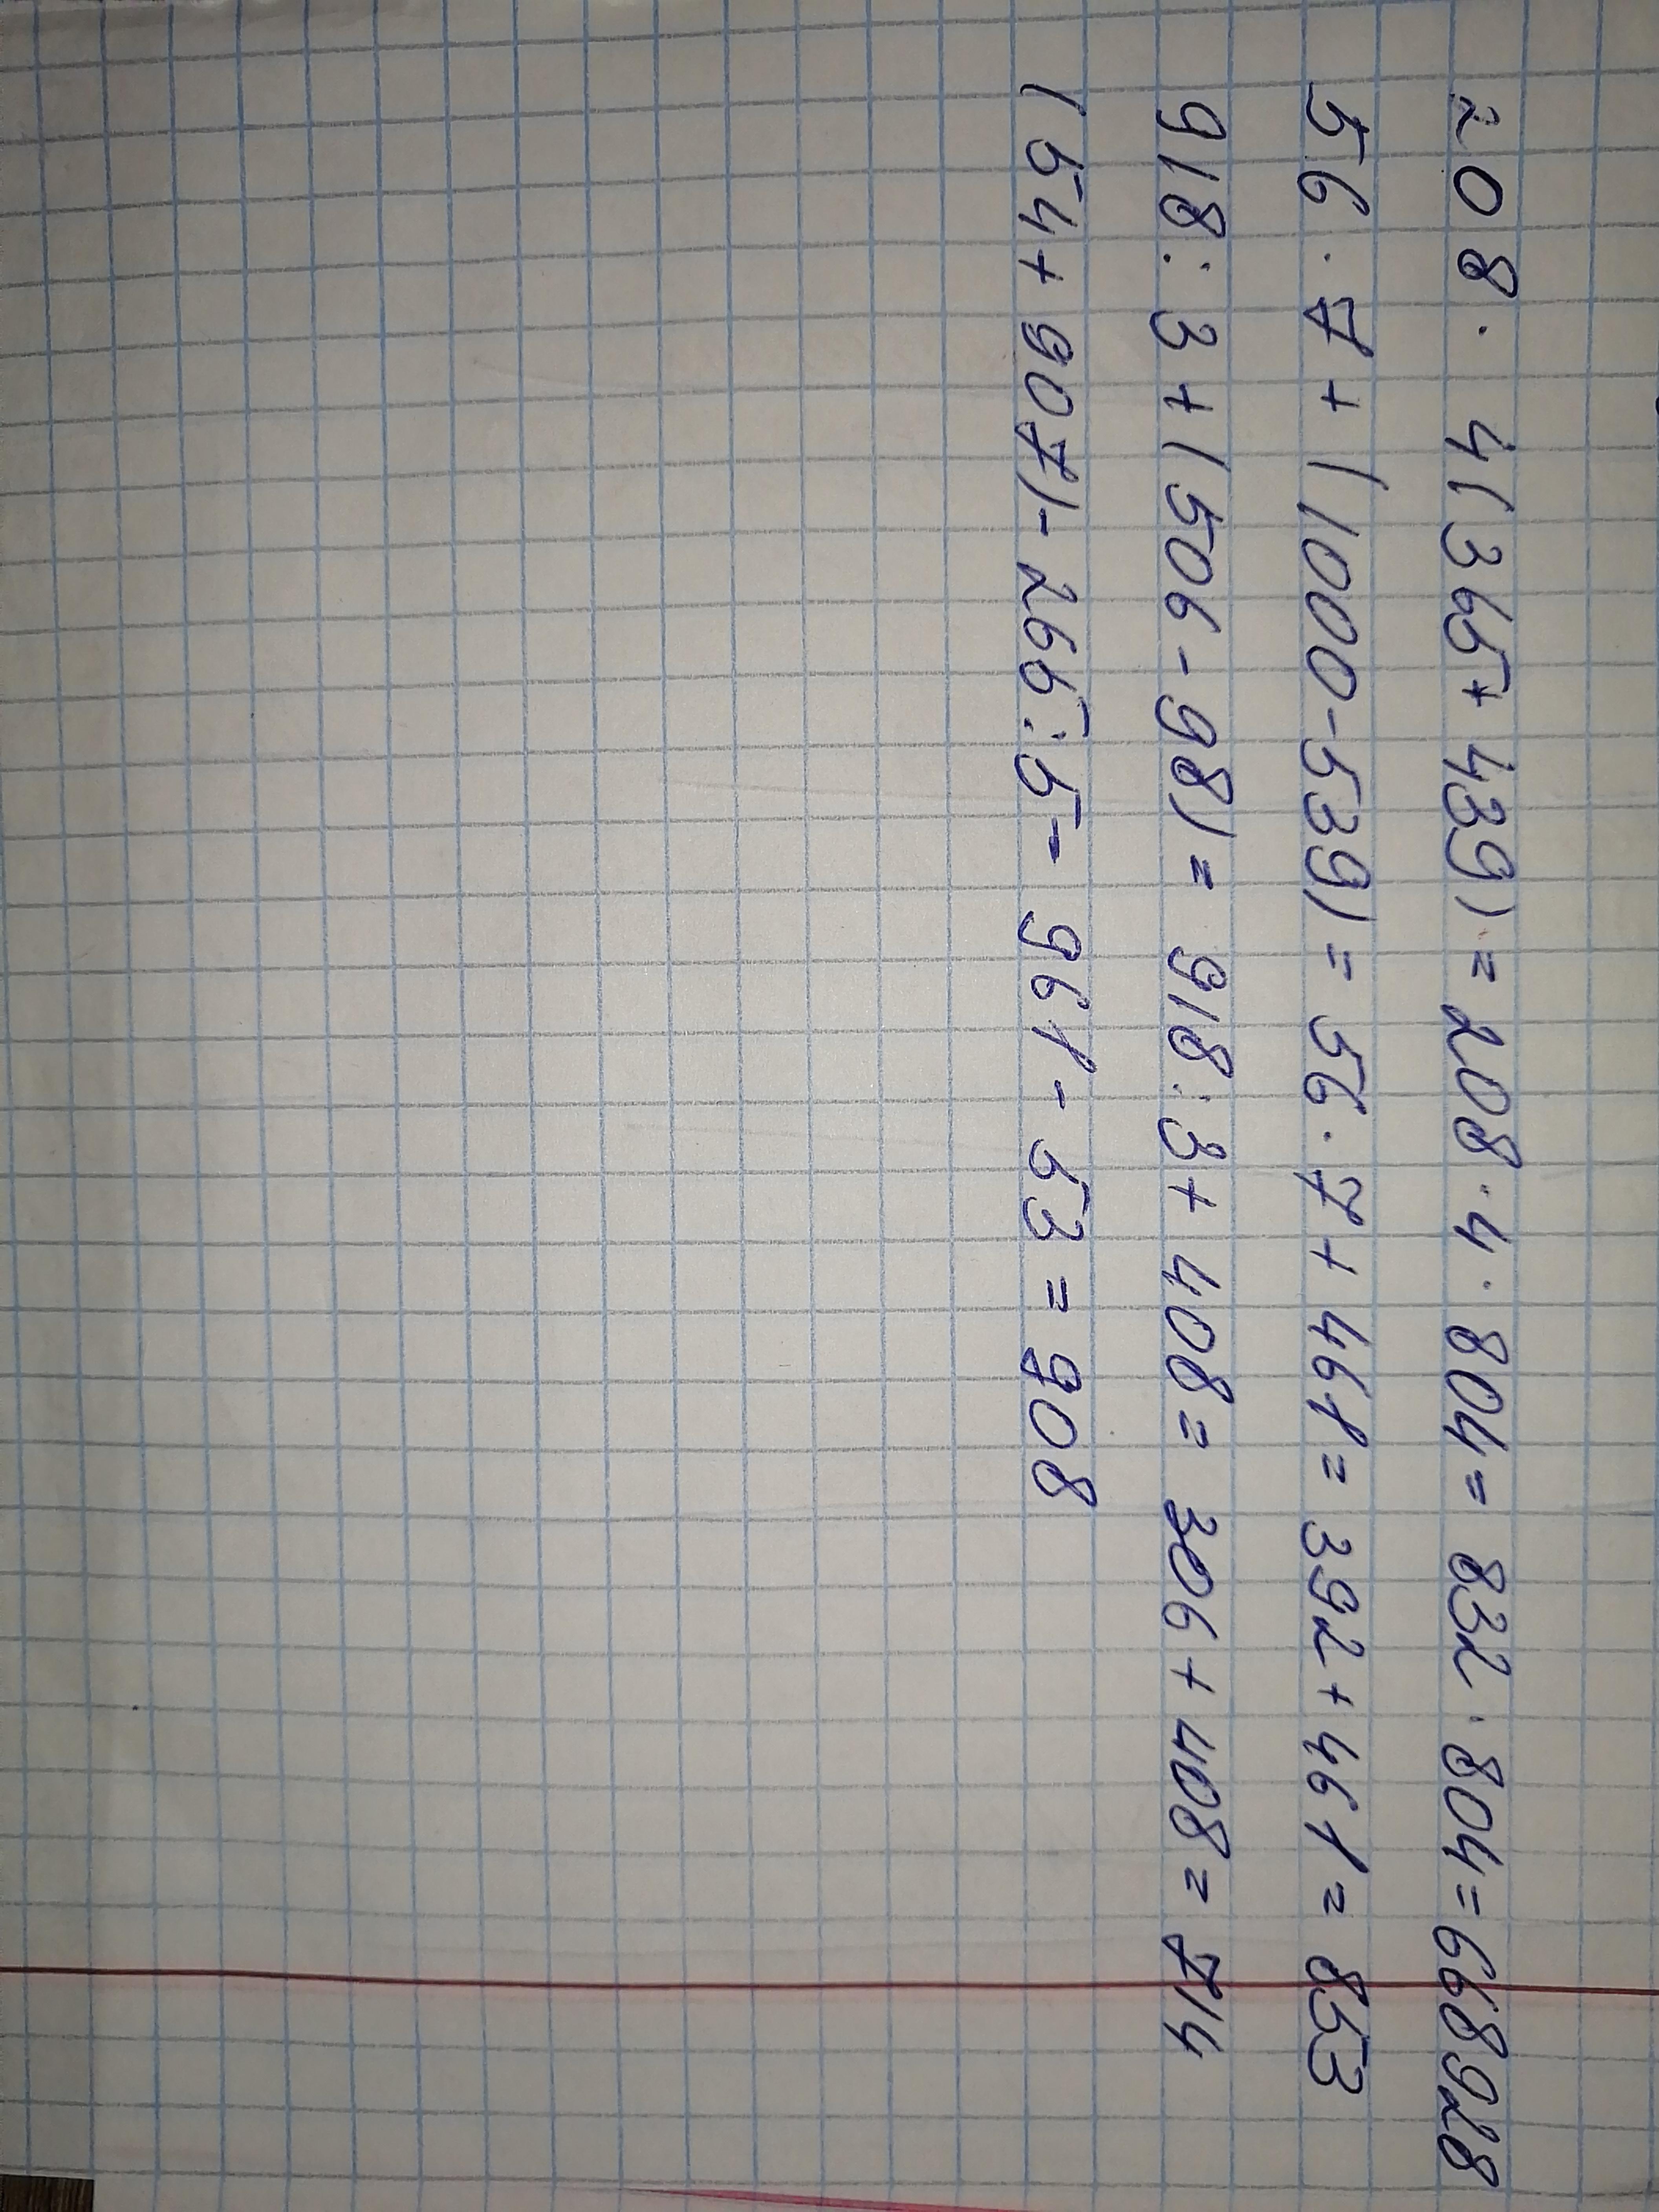 208 · 4(365+439) = 208 · 4 · 804 = 832 · 804 = 668928
56 · 7 + (1000-539) = 56 · 7 + 461 = 392 + 461 = 853
918 : 3 + (506 - 98) = 918 : 3 + 408 = 306 + 408 = 714
(54 + 907) - 265 : 5 - 961 - 53 = 908